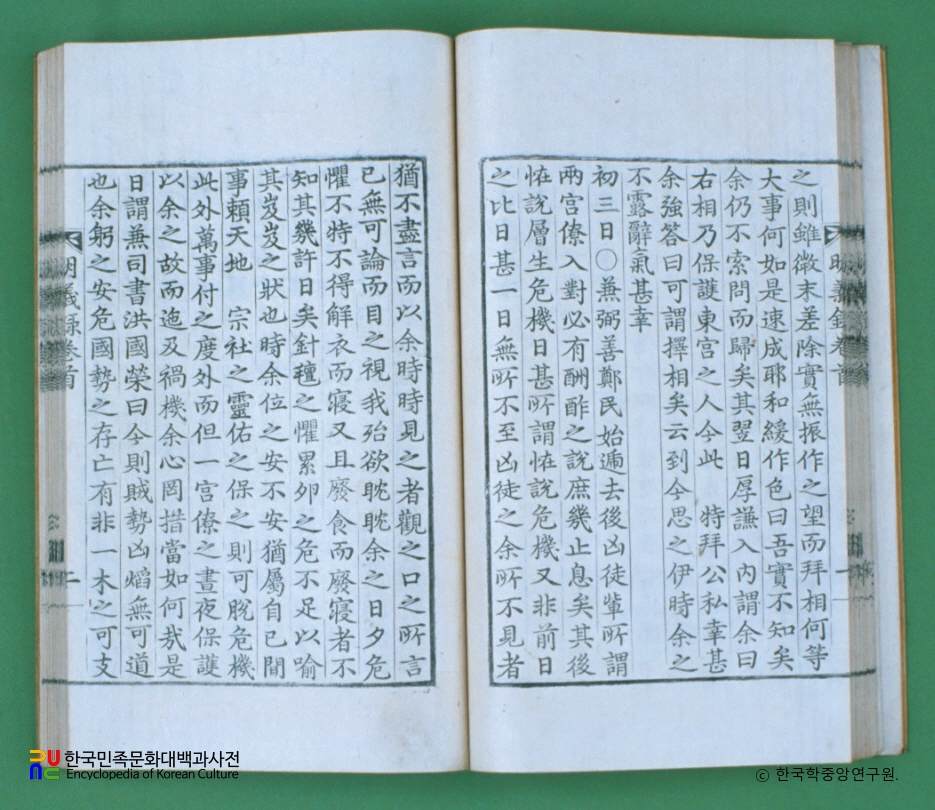 之則雖微末差除實無振作之望而拜相何等
大事何如是速成耶和緩作色曰吾實不知矣
余仍不索問而歸矣其翌日厚謙入內謂余曰
右相乃保護東宮之人今此 特拜公私幸甚
余強答曰可謂擇相矣云到今思之伊時余之
不露辭氣甚幸
初三日○兼弼善鄭民始遞去後凶徒輩所謂
兩宮僚入對必有酬酢之說庶幾止息矣其後
恠說層生危機日甚所謂恠說危機又非前日
之比日甚一日無所不至凶徒之余所不見者
猶不盡言而以余時時見之者觀之口之所言
已無可論而目之視我殆欲眈眈余之日夕危
懼不特不得解衣而寢又且廢食而廢寢者不
知其幾許日矣針氊之懼累卵之危不足以喻
其岌岌之狀也時余位之安不安猶屬自己間
事賴天地 宗社之靈佑之保之則可脫危機
此外萬事付之度外而但一宮僚之晝夜保護
以余之故而迤及禍機余心罔措當如何㢤是
日謂兼司書洪國榮曰今則賊勢凶熖無可道
也余躬之安危國勢之存亡有非一木之可支
明義錄卷首
一
明義錄卷首
二
한국민족문화대백과사전
Encyclopedia of Korean Culture
© 한국학중앙연구원.